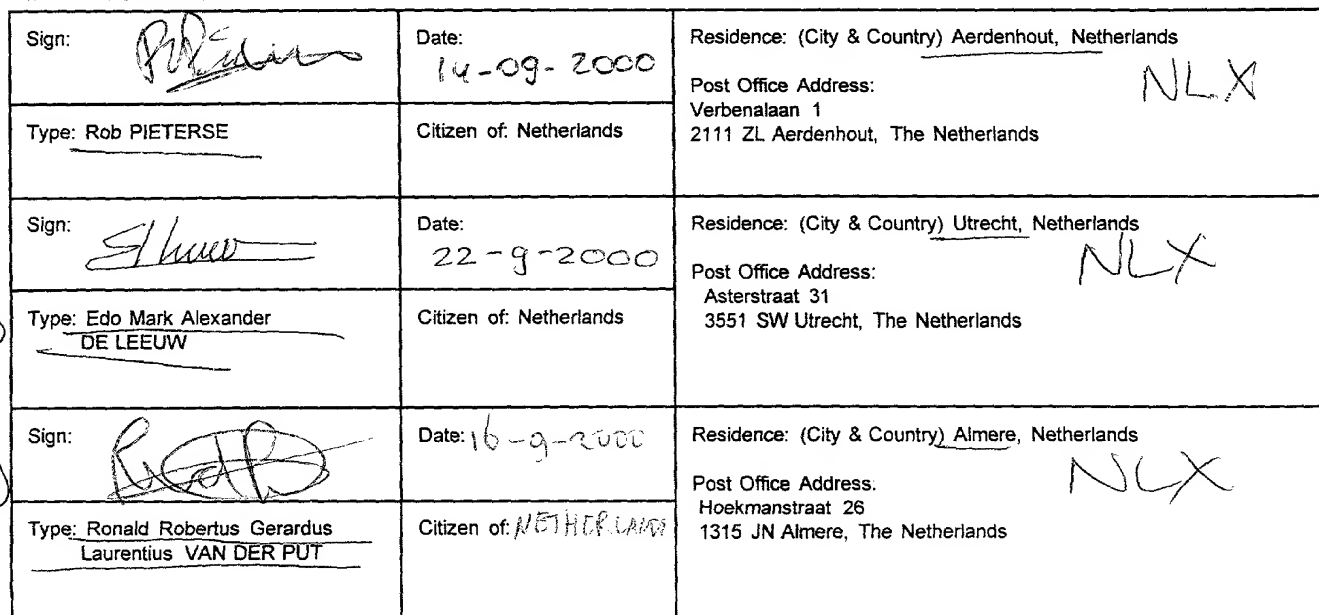 Sign:
Date:
14-09-2000
Residence: (City & Country) Aerdenhout, Netherlands
NLX
Post Office Address:
Verbenalaan 1
2111 ZL Aerdenhout, The Netherlands
Type: Rob PIETERSE
Citizen of: Netherlands
Sign:
Date:
22-9-2000
Residence: (City & Country) Utrecht, Netherlands
NLX
Post Office Address:
Asterstraat 31
3551 SW Utrecht, The Netherlands
Type: Edo Mark Alexander
DE LEEUW
Citizen of: Netherlands
Sign:
Date: 16-9-2000
Residence: (City & Country) Almere, Netherlands
NLX
Post Office Address.
Hoekmanstraat 26
1315 JN Almere, The Netherlands
Type: Ronald Robertus Gerardus
Laurentius VAN DER PUT
Citizen of: NETHERLANDS